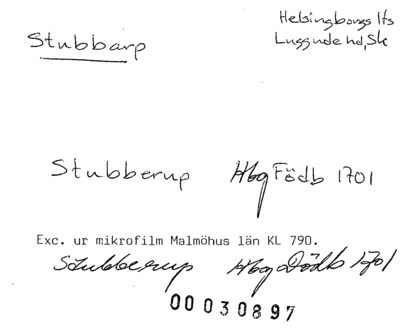 Stubbarp
Helsingborgs lfs
Luggude hd, Sk
Stubberup Hbg Födb 1701
Exc. ur mikrofilm Malmöhus län KL 790.
Stubberup Hbg Dödb 1701
00030897